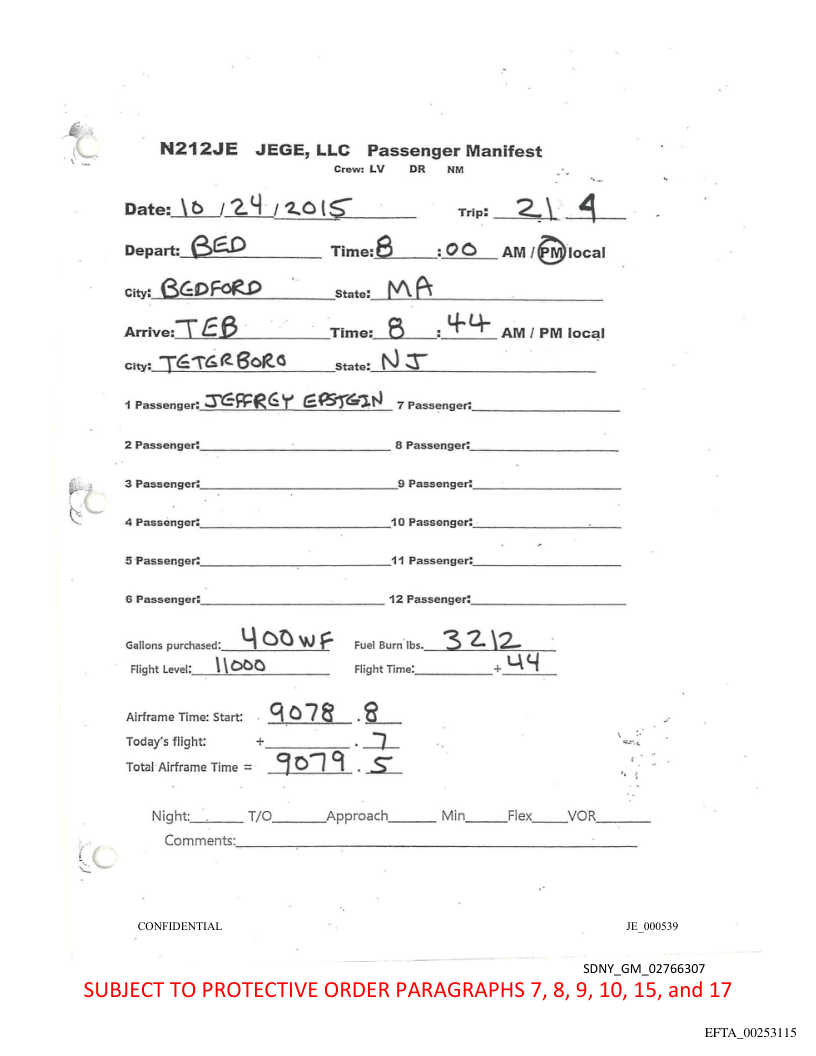 N212JE JEGE, LLC Passenger Manifest
Crew: LV DR NM
Date: 10 / 24 / 2015 Trip: 21 4
Depart: BED Time: 8 : 00 AM / PM local
City: BEDFORD State: MA
Arrive: TEB Time: 8 : 44 AM / PM local
City: TETERBORO State: NJ
1 Passenger: JEFFREY EPSTEIN 7 Passenger:
2 Passenger: 8 Passenger:
3 Passenger: 9 Passenger:
4 Passenger: 10 Passenger:
5 Passenger: 11 Passenger:
6 Passenger: 12 Passenger:
Gallons purchased: 400 WF Fuel Burn lbs. 3212
Flight Level: 11000 Flight Time: + 44
Airframe Time: Start: 9078 . 8
Today's flight: + . 7
Total Airframe Time = 9079 . 5
Night: T/O Approach Min Flex VOR
Comments:
CONFIDENTIAL JE_000539
SDNY_GM_02766307
SUBJECT TO PROTECTIVE ORDER PARAGRAPHS 7, 8, 9, 10, 15, and 17
EFTA_00253115